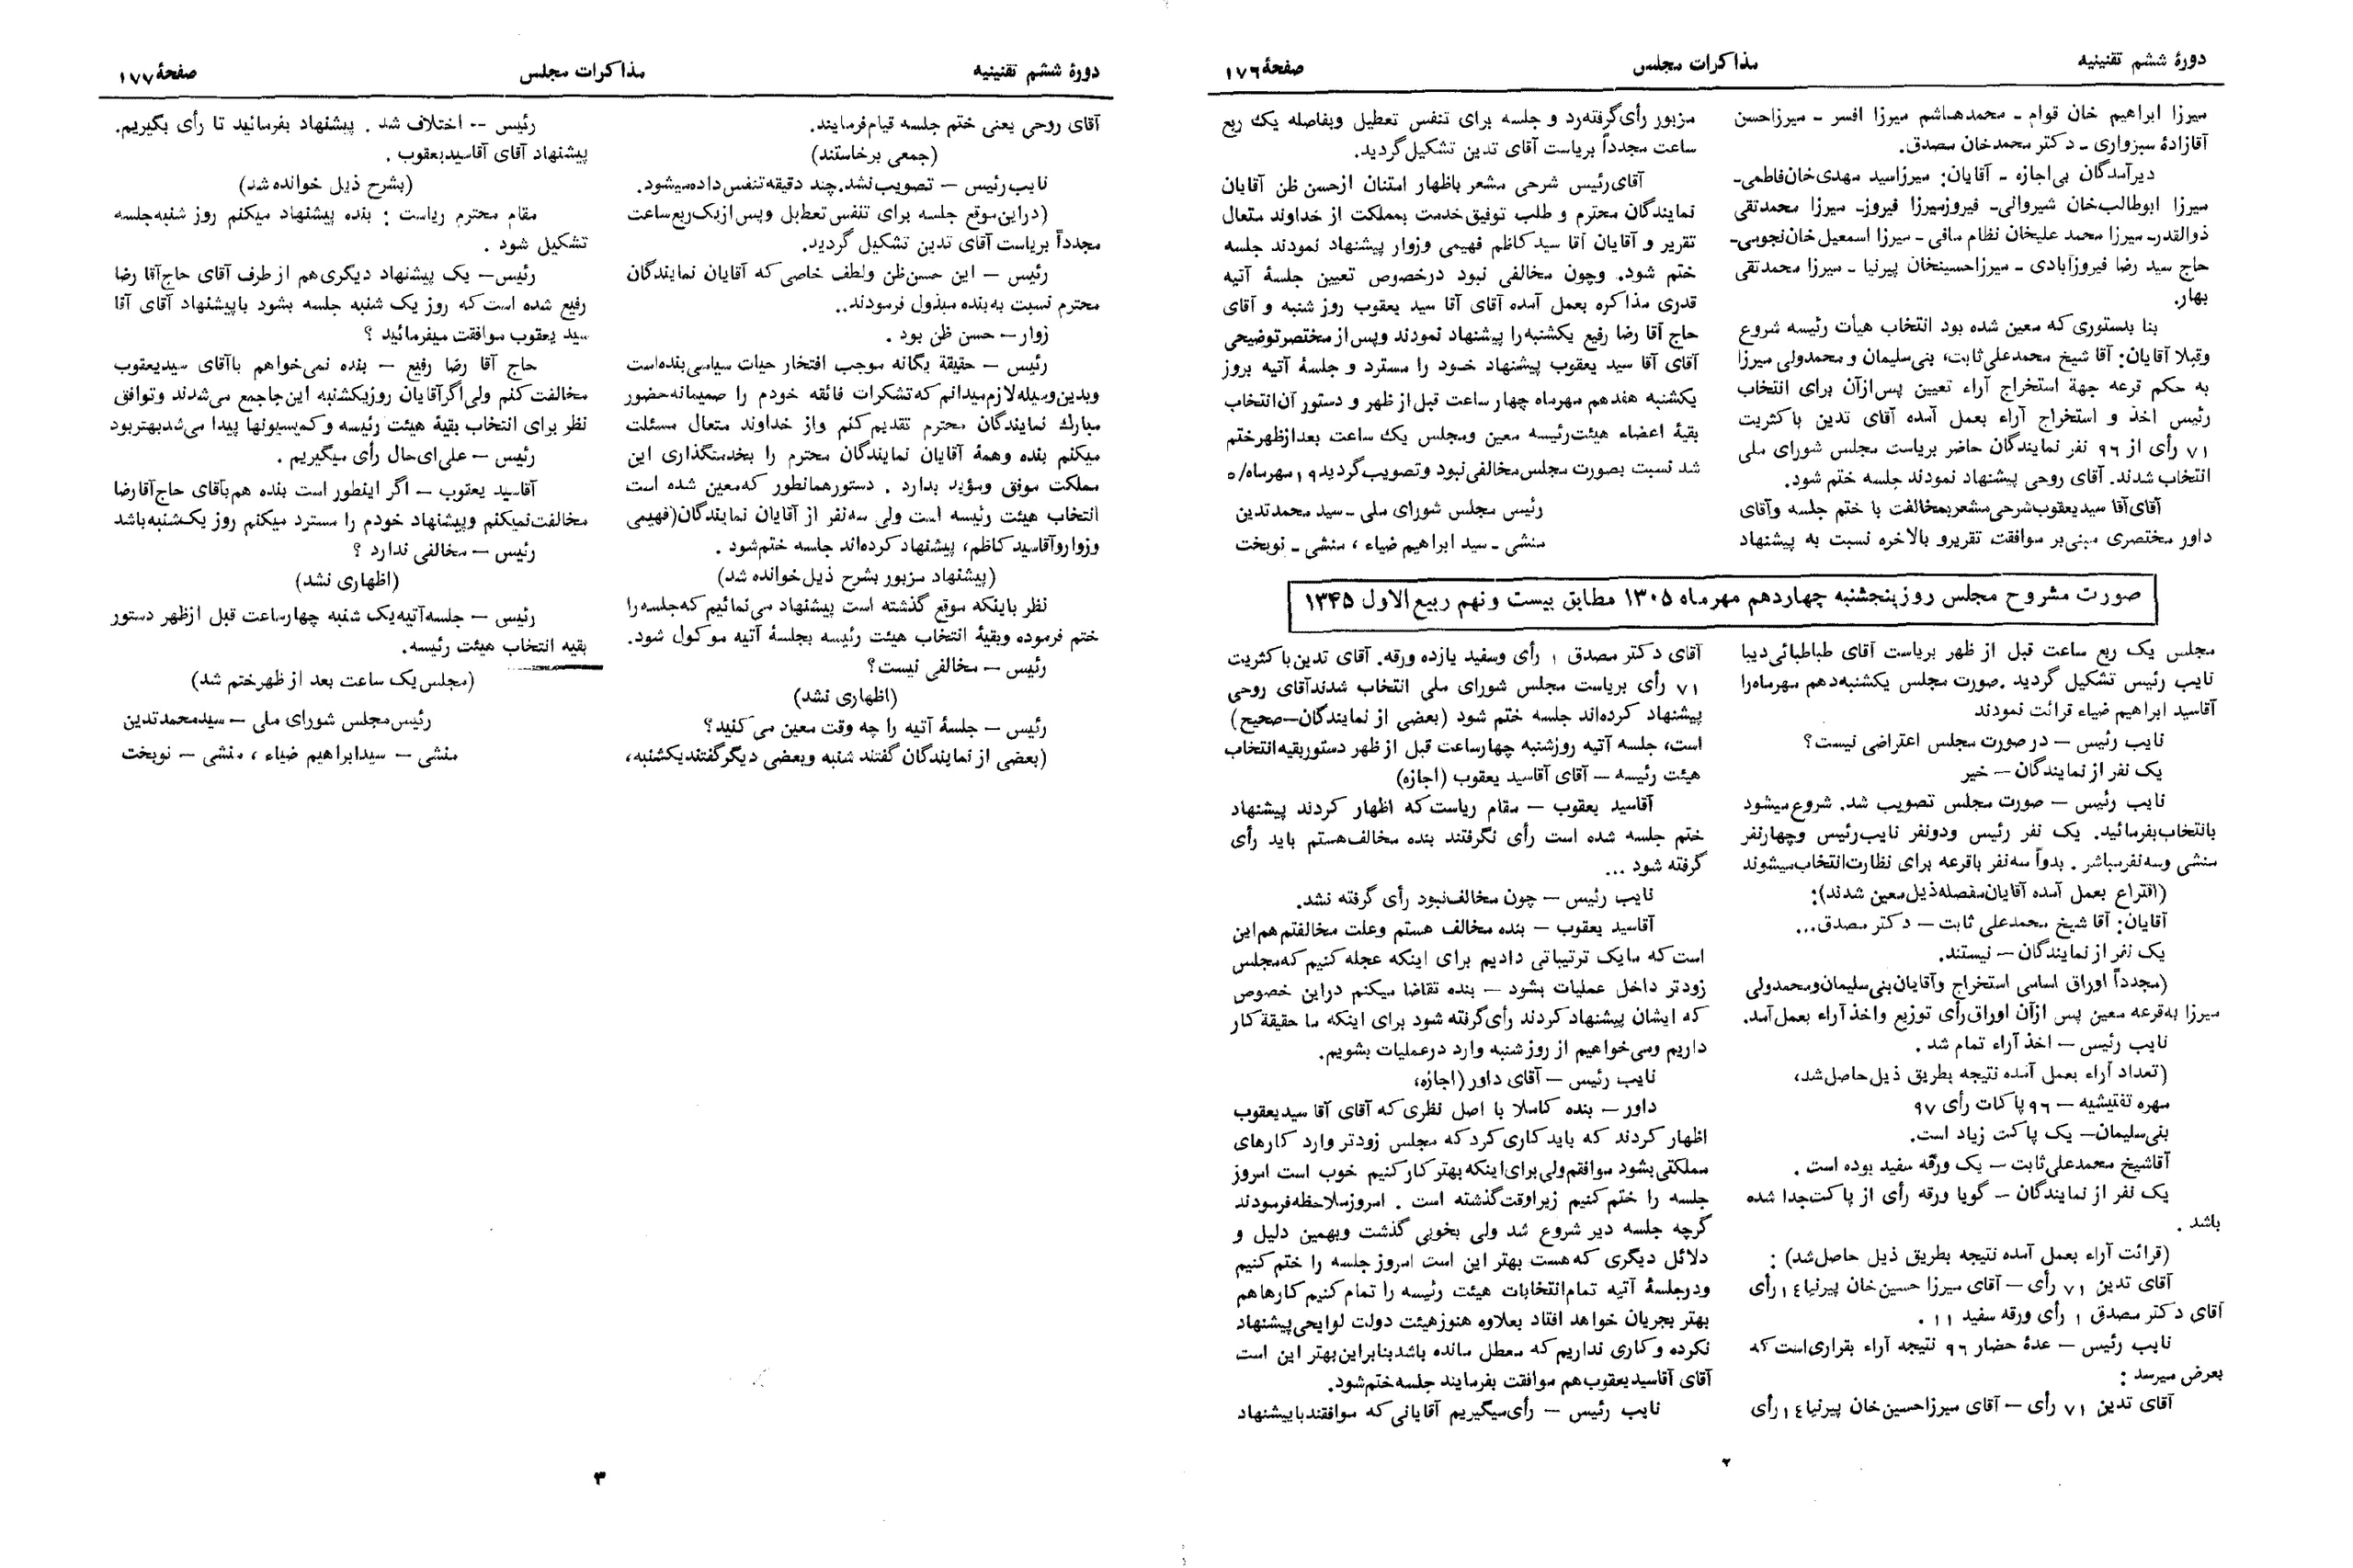 دورهٔ ششم تقنینیه
مذاکرات مجلس
صفحهٔ ۱۷۶
میرزا ابراهیم خان قوام ـ محمدهاشم میرزا افسر ـ میرزاحسن
آقازادهٔ سبزواری ـ دکتر محمدخان مصدق.
دیرآمدگان بی‌اجازه ـ آقایان: میرزاسید مهدی‌خان‌فاطمی‌ـ
میرزا ابوطالب‌خان شیروانی‌ـ فیروزمیرزا فیروزـ میرزا محمدتقی
ذوالقدرـ میرزا محمد علیخان نظام مافی ـ میرزا اسمعیل خان‌نجومی‌ـ
حاج سید رضا فیروزآبادی ـ میرزاحسینخان پیرنیا ـ میرزا محمدتقی
بهار.
بنا بدستوری که معین شده بود انتخاب هیأت رئیسه شروع
وقبلا آقایان: آقا شیخ محمدعلی‌ثابت، بنی‌سلیمان و محمدولی میرزا
به حکم قرعه جهة استخراج آراء تعیین پس‌ازآن برای انتخاب
رئیس اخذ و استخراج آراء بعمل آمده آقای تدین باکثریت
۷۱ رأی از ۹۶ نفر نمایندگان حاضر بریاست مجلس شورای ملی
انتخاب شدند. آقای روحی پیشنهاد نمودند جلسه ختم شود.
آقای‌آقا سیدیعقوب‌شرحی‌مشعربمخالفت با ختم جلسه وآقای
داور مختصری مبنی‌بر موافقت تقریرو بالاخره نسبت به پیشنهاد
مزبور رأی‌گرفته‌رد و جلسه برای تنفس تعطیل وبفاصله یک ربع
ساعت مجدداً بریاست آقای تدین تشکیل‌گردید.
آقای‌رئیس شرحی مشعر باظهار امتنان ازحسن ظن آقایان
نمایندگان محترم و طلب توفیق‌خدمت بمملکت از خداوند متعال
تقریر و آقایان آقا سیدکاظم فهیمی وزوار پیشنهاد نمودند جلسه
ختم شود. وچون مخالفی نبود درخصوص تعیین جلسهٔ آتیه
قدری مذاکره بعمل آمده آقای آقا سید یعقوب روز شنبه و آقای
حاج آقا رضا رفیع یکشنبه‌را پیشنهاد نمودند وپس‌از مختصرتوضیحی
آقای آقا سید یعقوب پیشنهاد خود را مسترد و جلسهٔ آتیه بروز
یکشنبه هفدهم مهرماه چهار ساعت قبل‌از ظهر و دستور آن‌انتخاب
بقیهٔ اعضاء هیئت‌رئیسه معین ومجلس یک ساعت بعدازظهرختم
شد نسبت بصورت مجلس‌مخالفی‌نبود وتصویب‌گردید۱۹مهرماه/۵
رئیس مجلس شورای ملی ـ سید محمدتدین
منشی ـ سید ابراهیم ضیاء ، منشی ـ نوبخت
صورت مشروح مجلس روزپنجشنبه چهاردهم مهرماه ۱۳۰۵ مطابق بیست ونهم ربیع‌الاول ۱۳۴۵
مجلس یک ربع ساعت قبل از ظهر بریاست آقای طباطبائی‌دیبا
نایب رئیس تشکیل گردید .صورت مجلس یکشنبه‌دهم مهرماه‌را
آقاسید ابراهیم ضیاء قرائت نمودند
نایب رئیس — درصورت مجلس اعتراضی نیست؟
یک نفر از نمایندگان— خیر
نایب رئیس — صورت مجلس تصویب شد. شروع‌میشود
بانتخاب‌بفرمائید. یک نفر رئیس ودونفر نایب‌رئیس وچهارنفر
منشی وسه‌نفرمباشر . بدواً سه‌نفر باقرعه برای نظارت‌انتخاب‌میشوند
(اقتراع بعمل آمده آقایان‌مفصله‌ذیل‌معین شدند):
آقایان: آقا شیخ محمدعلی ثابت — دکتر مصدق...
یک نفر از نمایندگان — نیستند.
(مجدداً اوراق اسامی استخراج وآقایان‌بنی‌سلیمان‌ومحمدولی
میرزا به‌قرعه معین پس ازآن اوراق‌رأی توزیع واخذآراء بعمل‌آمد.
نایب رئیس — اخذ آراء تمام شد .
(تعداد آراء بعمل آمده نتیجه بطریق ذیل‌حاصل‌شد،
مهره تفتیشیه — ۹۶ پاکات رأی ۹۷
بنی‌سلیمان— یک پاکت زیاد است.
آقاشیخ محمدعلی‌ثابت — یک ورقه سفید بوده است .
یک نفر از نمایندگان — گویا ورقه رأی از پاکت‌جدا شده
باشد .
(قرائت آراء بعمل آمده نتیجه بطریق ذیل حاصل‌شد) :
آقای تدین ۷۱ رأی — آقای میرزا حسین‌خان پیرنیا۱٤رأی
آقای دکتر مصدق ۱ رأی ورقه سفید ۱۱ .
نایب رئیس — عدهٔ حضار ۹۶ نتیجه آراء بقراری‌است‌که
بعرض میرسد :
آقای تدین ۷۱ رأی — آقای میرزاحسین‌خان پیرنیا۱٤رأی
آقای دکتر مصدق ۱ رأی وسفید یازده ورقه. آقای تدین‌باکثریت
۷۱ رأی بریاست مجلس شورای ملی انتخاب شدندآقای روحی
پیشنهاد کرده‌اند جلسه ختم شود (بعضی از نمایندگان—صحیح)
است، جلسه آتیه روزشنبه چهارساعت قبل از ظهر دستوربقیه‌انتخاب
هیئت رئیسه — آقای آقاسید یعقوب (اجازه)
آقاسید یعقوب — مقام ریاست‌که اظهار کردند پیشنهاد
ختم جلسه شده است رأی نگرفتند بنده مخالف‌هستم باید رأی
گرفته شود ...
نایب رئیس — چون مخالف‌نبود رأی گرفته نشد.
آقاسید یعقوب — بنده مخالف هستم وعلت مخالفتم هم‌این
است‌که مایک ترتیباتی دادیم برای اینکه عجله‌کنیم‌که‌مجلس
زودتر داخل عملیات بشود — بنده تقاضا میکنم دراین خصوص
که ایشان پیشنهادکردند رأی‌گرفته شود برای اینکه ما حقیقة‌کار
داریم ومی‌خواهیم از روزشنبه وارد درعملیات بشویم.
نایب رئیس — آقای داور (اجازه،
داور — بنده کاملا با اصل نظری‌که آقای آقا سیدیعقوب
اظهارکردند که بایدکاری‌کردکه مجلس زودتر وارد کارهای
مملکتی‌بشود موافقم‌ولی‌برای‌اینکه‌بهترکارکنیم خوب است امروز
جلسه را ختم‌کنیم زیراوقت‌گذشته است . امروزملاحظه‌فرمودند
گرچه جلسه دیر شروع شد ولی بخوبی گذشت وبهمین دلیل و
دلائل دیگری که‌هست بهتر این است امروزجلسه را ختم‌کنیم
ودرجلسهٔ آتیه تمام‌انتخابات هیئت رئیسه را تمام کنیم کارهاهم
بهتر بجریان خواهد افتاد بعلاوه هنوزهیئت دولت لوایحی‌پیشنهاد
نکرده وکاری نداریم‌که معطل مانده باشدبنابراین‌بهتر این است
آقای آقاسیدیعقوب‌هم موافقت بفرمایند جلسه‌ختم‌شود.
نایب رئیس — رأی‌میگیریم آقایانی‌که موافقندباپیشنهاد
۲
دورهٔ ششم تقنینیه
مذاکرات مجلس
صفحهٔ ۱۷۷
آقای روحی یعنی ختم جلسه قیام‌فرمایند.
(جمعی برخاستند)
نایب‌رئیس — تصویب‌نشد.چند دقیقه‌تنفس‌داده‌میشود.
(دراین‌موقع جلسه برای تنفس تعطیل وپس‌ازیک‌ربع‌ساعت
مجدداً بریاست آقای تدین تشکیل گردید.
رئیس — این حسن‌ظن ولطف خاصی که آقایان نمایندگان
محترم نسبت به‌بنده مبذول فرمودند..
زوار— حسن ظن بود .
رئیس — حقیقة یگانه موجب افتخار حیات سیاسی‌بنده‌است
وبدین‌وسیله‌لازم‌میدانم‌که‌تشکرات فائقه خودم را صمیمانه‌حضور
مبارک نمایندگان محترم تقدیم‌کنم واز خداوند متعال مسئلت
میکنم بنده وهمهٔ آقایان نمایندگان محترم را بخدمتگذاری این
مملکت موفق ومؤید بدارد . دستورهمانطور که‌معین شده است
انتخاب هیئت رئیسه است ولی سه‌نفر از آقایان نمایندگان(فهیمی
وزواروآقاسیدکاظم، پیشنهادکرده‌اند جلسه ختم‌شود .
(پیشنهاد مزبور بشرح ذیل‌خوانده شد)
نظر باینکه موقع گذشته است پیشنهاد می‌نمائیم که‌جلسه‌را
ختم فرموده وبقیهٔ انتخاب هیئت رئیسه بجلسهٔ آتیه موکول شود.
رئیس — مخالفی نیست؟
(اظهاری نشد)
رئیس — جلسهٔ آتیه را چه وقت معین می‌کنید؟
(بعضی از نمایندگان گفتند شنبه وبعضی دیگرگفتندیکشنبه،
رئیس -- اختلاف شد . پیشنهاد بفرمائید تا رأی بگیریم.
پیشنهاد آقای آقاسیدیعقوب .
(بشرح ذیل خوانده شد)
مقام محترم ریاست : بنده پیشنهاد میکنم روز شنبه‌جلسه
تشکیل شود .
رئیس— یک پیشنهاد دیگری‌هم از طرف آقای حاج‌آقا رضا
رفیع شده است‌که روز یک شنبه جلسه بشود باپیشنهاد آقای آقا
سید یعقوب موافقت میفرمائید ؟
حاج آقا رضا رفیع — بنده نمی‌خواهم باآقای سیدیعقوب
مخالفت‌کنم ولی‌اگرآقایان روزیکشنبه این‌جاجمع می‌شدند وتوافق
نظر برای انتخاب بقیهٔ هیئت رئیسه وکمیسیونها پیدا می‌شدبهتربود
رئیس — علی‌ای‌حال رأی میگیریم .
آقاسید یعقوب — اگر اینطور است بنده هم‌باقای حاج‌آقارضا
مخالفت‌نمیکنم وپیشنهاد خودم را مسترد میکنم روز یک‌شنبه‌باشد
رئیس — مخالفی ندارد ؟
(اظهاری نشد)
رئیس — جلسه‌آتیه‌یک شنبه چهارساعت قبل ازظهر دستور
بقیه انتخاب هیئت رئیسه.
(مجلس‌یک ساعت بعد ازظهرختم شد)
رئیس‌مجلس شورای ملی — سیدمحمدتدین
منشی — سیدابراهیم ضیاء ، منشی — نوبخت
۳